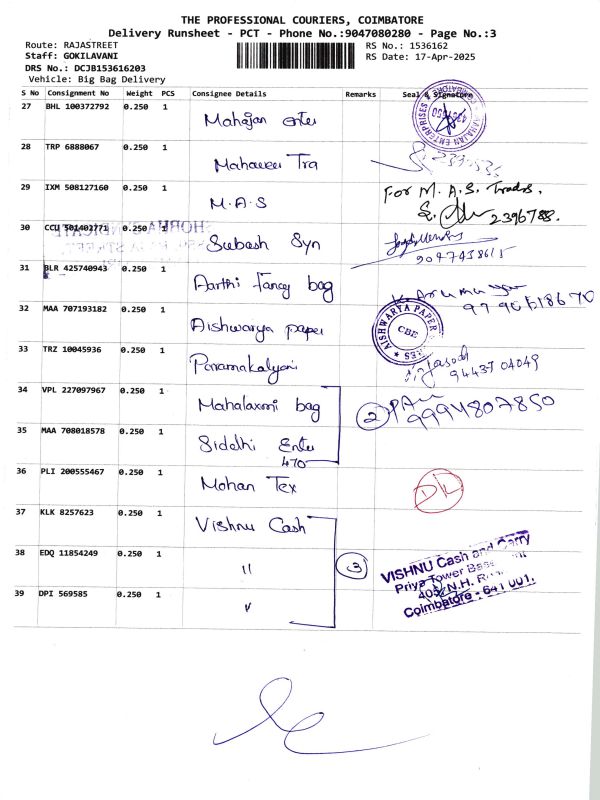 THE PROFESSIONAL COURIERS, COIMBATORE
Delivery Runsheet - PCT - Phone No.:9047080280 - Page No.:3
Route: RAJASTREET
RS No.: 1536162
Staff: GOKILAVANI
RS Date: 17-Apr-2025
DRS No.: DCJB153616203
Vehicle: Big Bag Delivery
S No Consignment No Weight PCS Consignee Details Remarks Seal & Signature
27 BHL 100372792 0.250 1 Mahajan enter
MAHAJAN ENTERPRISES
28 TRP 6888067 0.250 1 Mahaveer Tra
29 IXM 508127160 0.250 1 M.A.S For M.A.S. Traders.
2396788.
30 CCU 501402771 0.250 1 Subash Syn
9047438615
31 BLR 425740943 0.250 1 Aarthi fancy bag
32 MAA 707193182 0.250 1 Aishwarya paper
AISHWARYA PAPER
CBE
33 TRZ 10045936 0.250 1 Paramakalyani
94437 04049
34 VPL 227097967 0.250 1 Mahalaxmi bag
2 9994807850
35 MAA 708018578 0.250 1 Siddhi Enter
470
36 PLI 200555467 0.250 1 Mohan Tex
37 KLK 8257623 0.250 1 Vishnu Cash
38 EDQ 11854249 0.250 1 "
3
VISHNU Cash and Carry
Priya Tower
405, N.H.
Coimbatore - 641 001.
39 DPI 569585 0.250 1 "